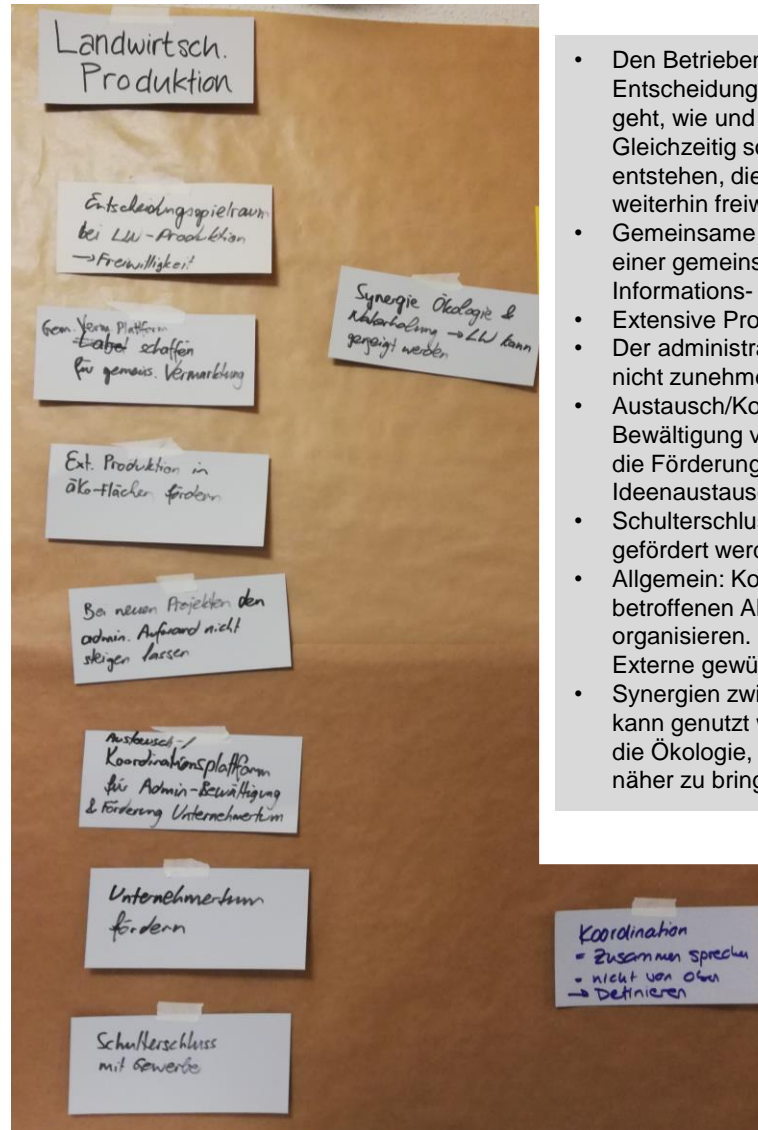 Landwirtsch.
Produktion
Entscheidungsspielraum
bei LW-Produktion
→ Freiwilligkeit
Gem. Verm. Plattform
Label schaffen
für gemeins. Vermarktung
Ext. Produktion in
öko-Flächen fördern
Bei neuen Projekten den
admin. Aufwand nicht
steigen lassen
Austausch-/
Koordinationsplattform
für Admin-Bewältigung
& Förderung Unternehmertum
Unternehmertum
fördern
Schulterschluss
mit Gewerbe
Synergie Ökologie &
Naherholung → LW kann
gezeigt werden
Koordination
= Zusammen sprechen
- nicht von oben
→ Definieren
• Den Betrieben
Entscheidung
geht, wie und
Gleichzeitig so
entstehen, die
weiterhin freiw
• Gemeinsame
einer gemeins
Informations-
• Extensive Pro
• Der administra
nicht zunehme
• Austausch/Ko
Bewältigung v
die Förderung
Ideenaustaus
• Schulterschlus
gefördert werd
• Allgemein: Ko
betroffenen Al
organisieren.
Externe gewü
• Synergien zwi
kann genutzt
die Ökologie,
näher zu bring